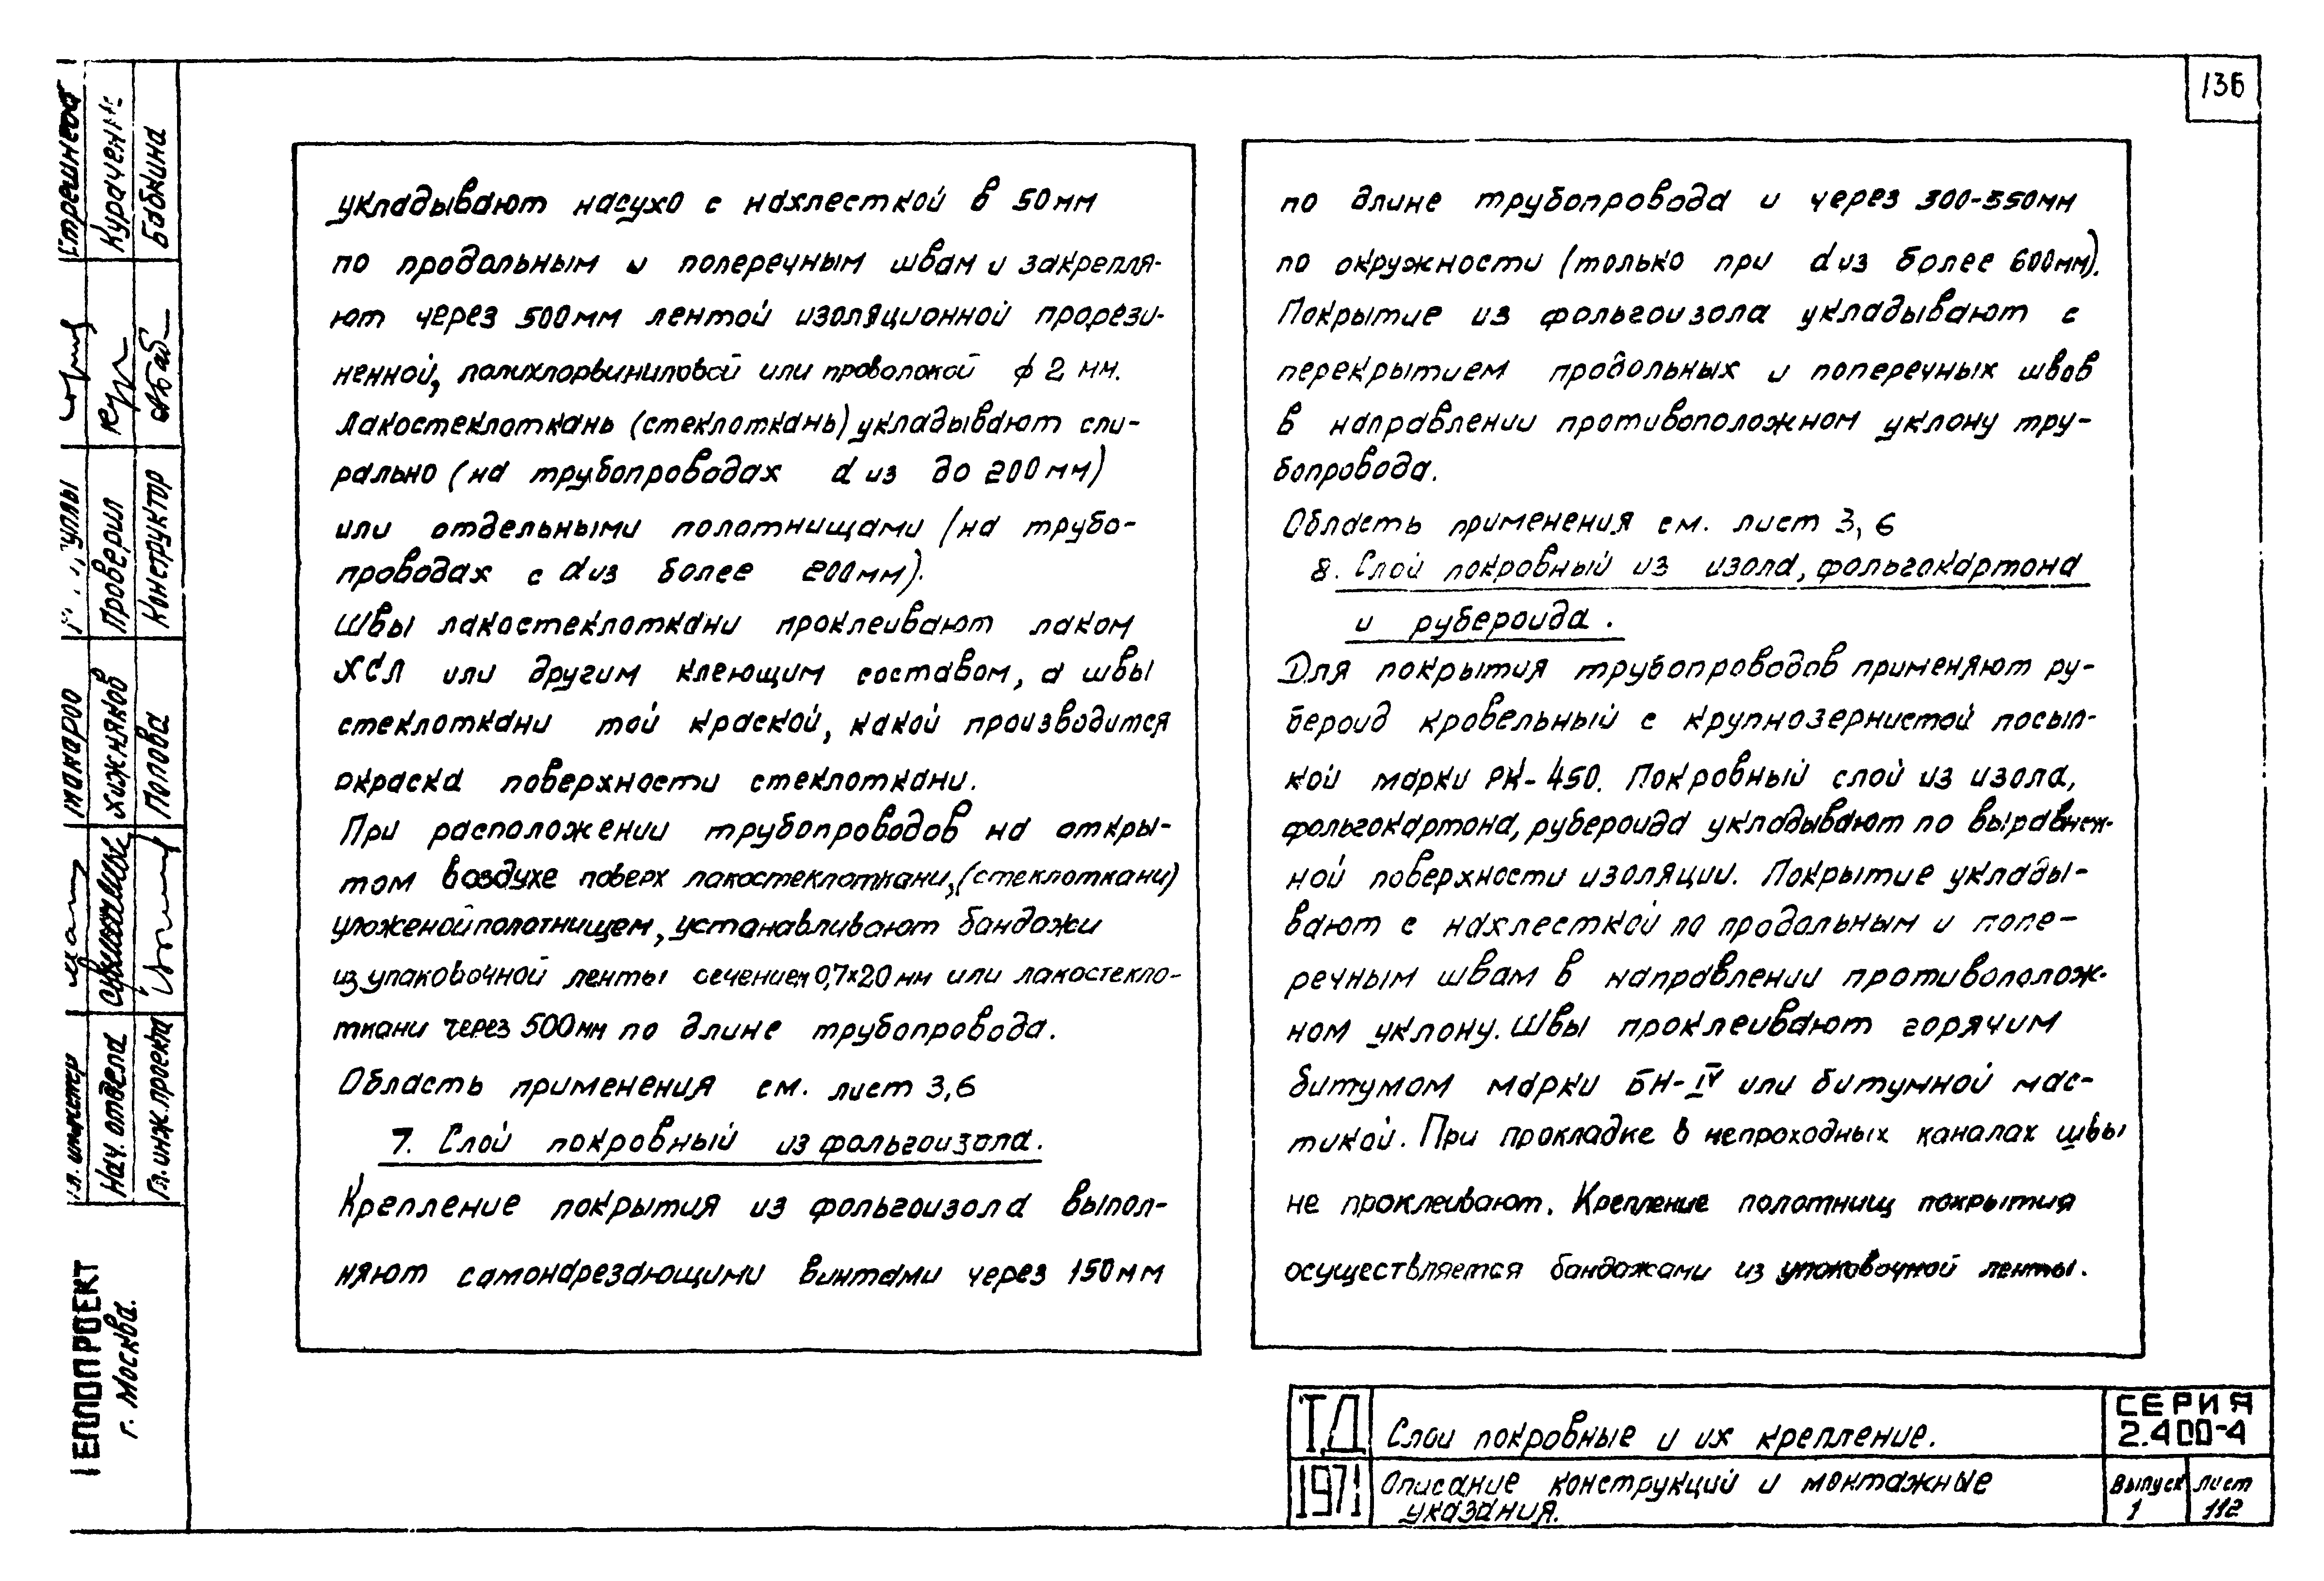 136
укладывают насухо с нахлесткой в 50мм
по продольным и поперечным швам и закрепля-
ют через 500мм лентой изоляционной прорези-
ненной, полихлорвиниловой или проволокой ф 2 мм.
Лакостеклоткань (стеклоткань) укладывают спи-
рально (на трубопроводах dиз до 200мм)
или отдельными полотнищами (на трубо-
проводах с dиз более 200мм).
Швы лакостеклоткани проклеивают лаком
ХСЛ или другим клеющим составом, а швы
стеклоткани той краской, какой производится
окраска поверхности стеклоткани.
При расположении трубопроводов на откры-
том воздухе поверх лакостеклоткани, (стеклоткани)
уложеной полотнищем, устанавливают бандажи
из упаковочной ленты сечением 0,7×20 мм или лакостекло-
ткани через 500мм по длине трубопровода.
Область применения см. лист 3,6
7. Слой покровный из фольгоизола.
Крепление покрытия из фольгоизола выпол-
няют самонарезающими винтами через 150мм
по длине трубопровода и через 300-350мм
по окружности (только при dиз более 600мм).
Покрытие из фольгоизола укладывают с
перекрытием продольных и поперечных швов
в направлении противоположном уклону тру-
бопровода.
Область применения см. лист 3,6
8. Слой покровный из изола, фольгокартона
и рубероида.
Для покрытия трубопроводов применяют ру-
бероид кровельный с крупнозернистой посып-
кой марки РК-450. Покровный слой из изола,
фольгокартона, рубероида укладывают по выравнен-
ной поверхности изоляции. Покрытие уклады-
вают с нахлесткой по продольным и попе-
речным швам в направлении противополож-
ном уклону. Швы проклеивают горячим
битумом марки БН-IV или битумной мас-
тикой. При прокладке в непроходных каналах швы
не проклеивают. Крепление полотнищ покрытия
осуществляется бандажами из упаковочной ленты.
ТД
1971
Слои покровные и их крепление.
Описание конструкций и монтажные
указания.
СЕРИЯ
2.400-4
Выпуск
1
лист
112
Нач. отдела
Гл.инж.проекта
Хижняков
Попова
Проверил
Конструктор
Бабкина
ТЕПЛОПРОЕКТ
г. Москва.